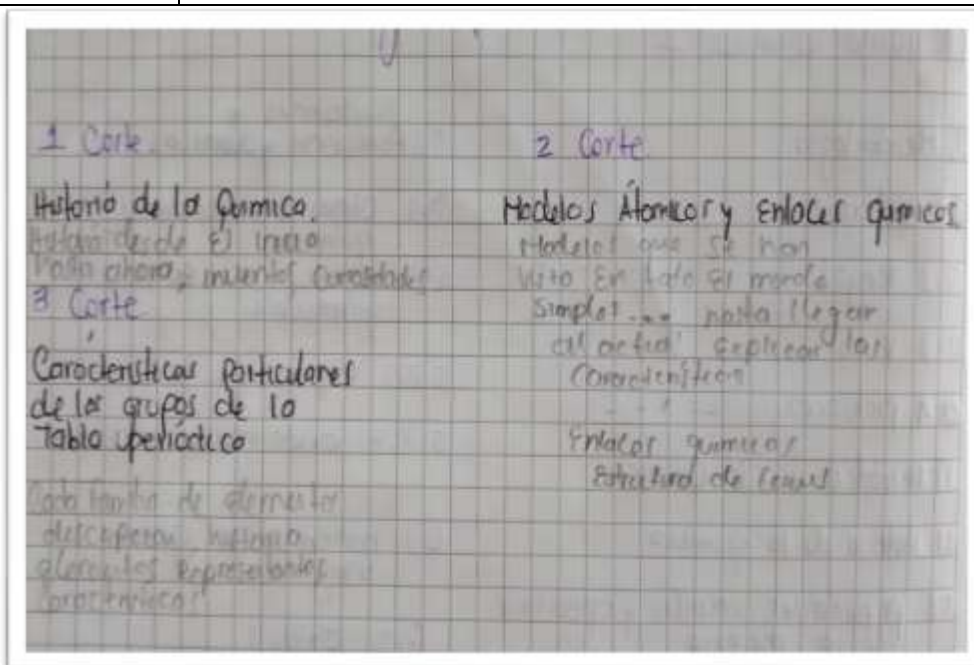 1 Corte
Historia de la Química.
Historia desde El inicio
hasta ahora, inventos curiosidades
3 Corte
Características particulares
de los grupos de la
Tabla periódica
Cada familia de elementos
historia
elementos Representantes
características
2 Corte
Modelos Átomicos y Enlaces químicos
Modelos que se han
visto En todo El mundo
Simples... hasta llegar
al actual explicar las
Características
Enlaces químicos
Estructura de